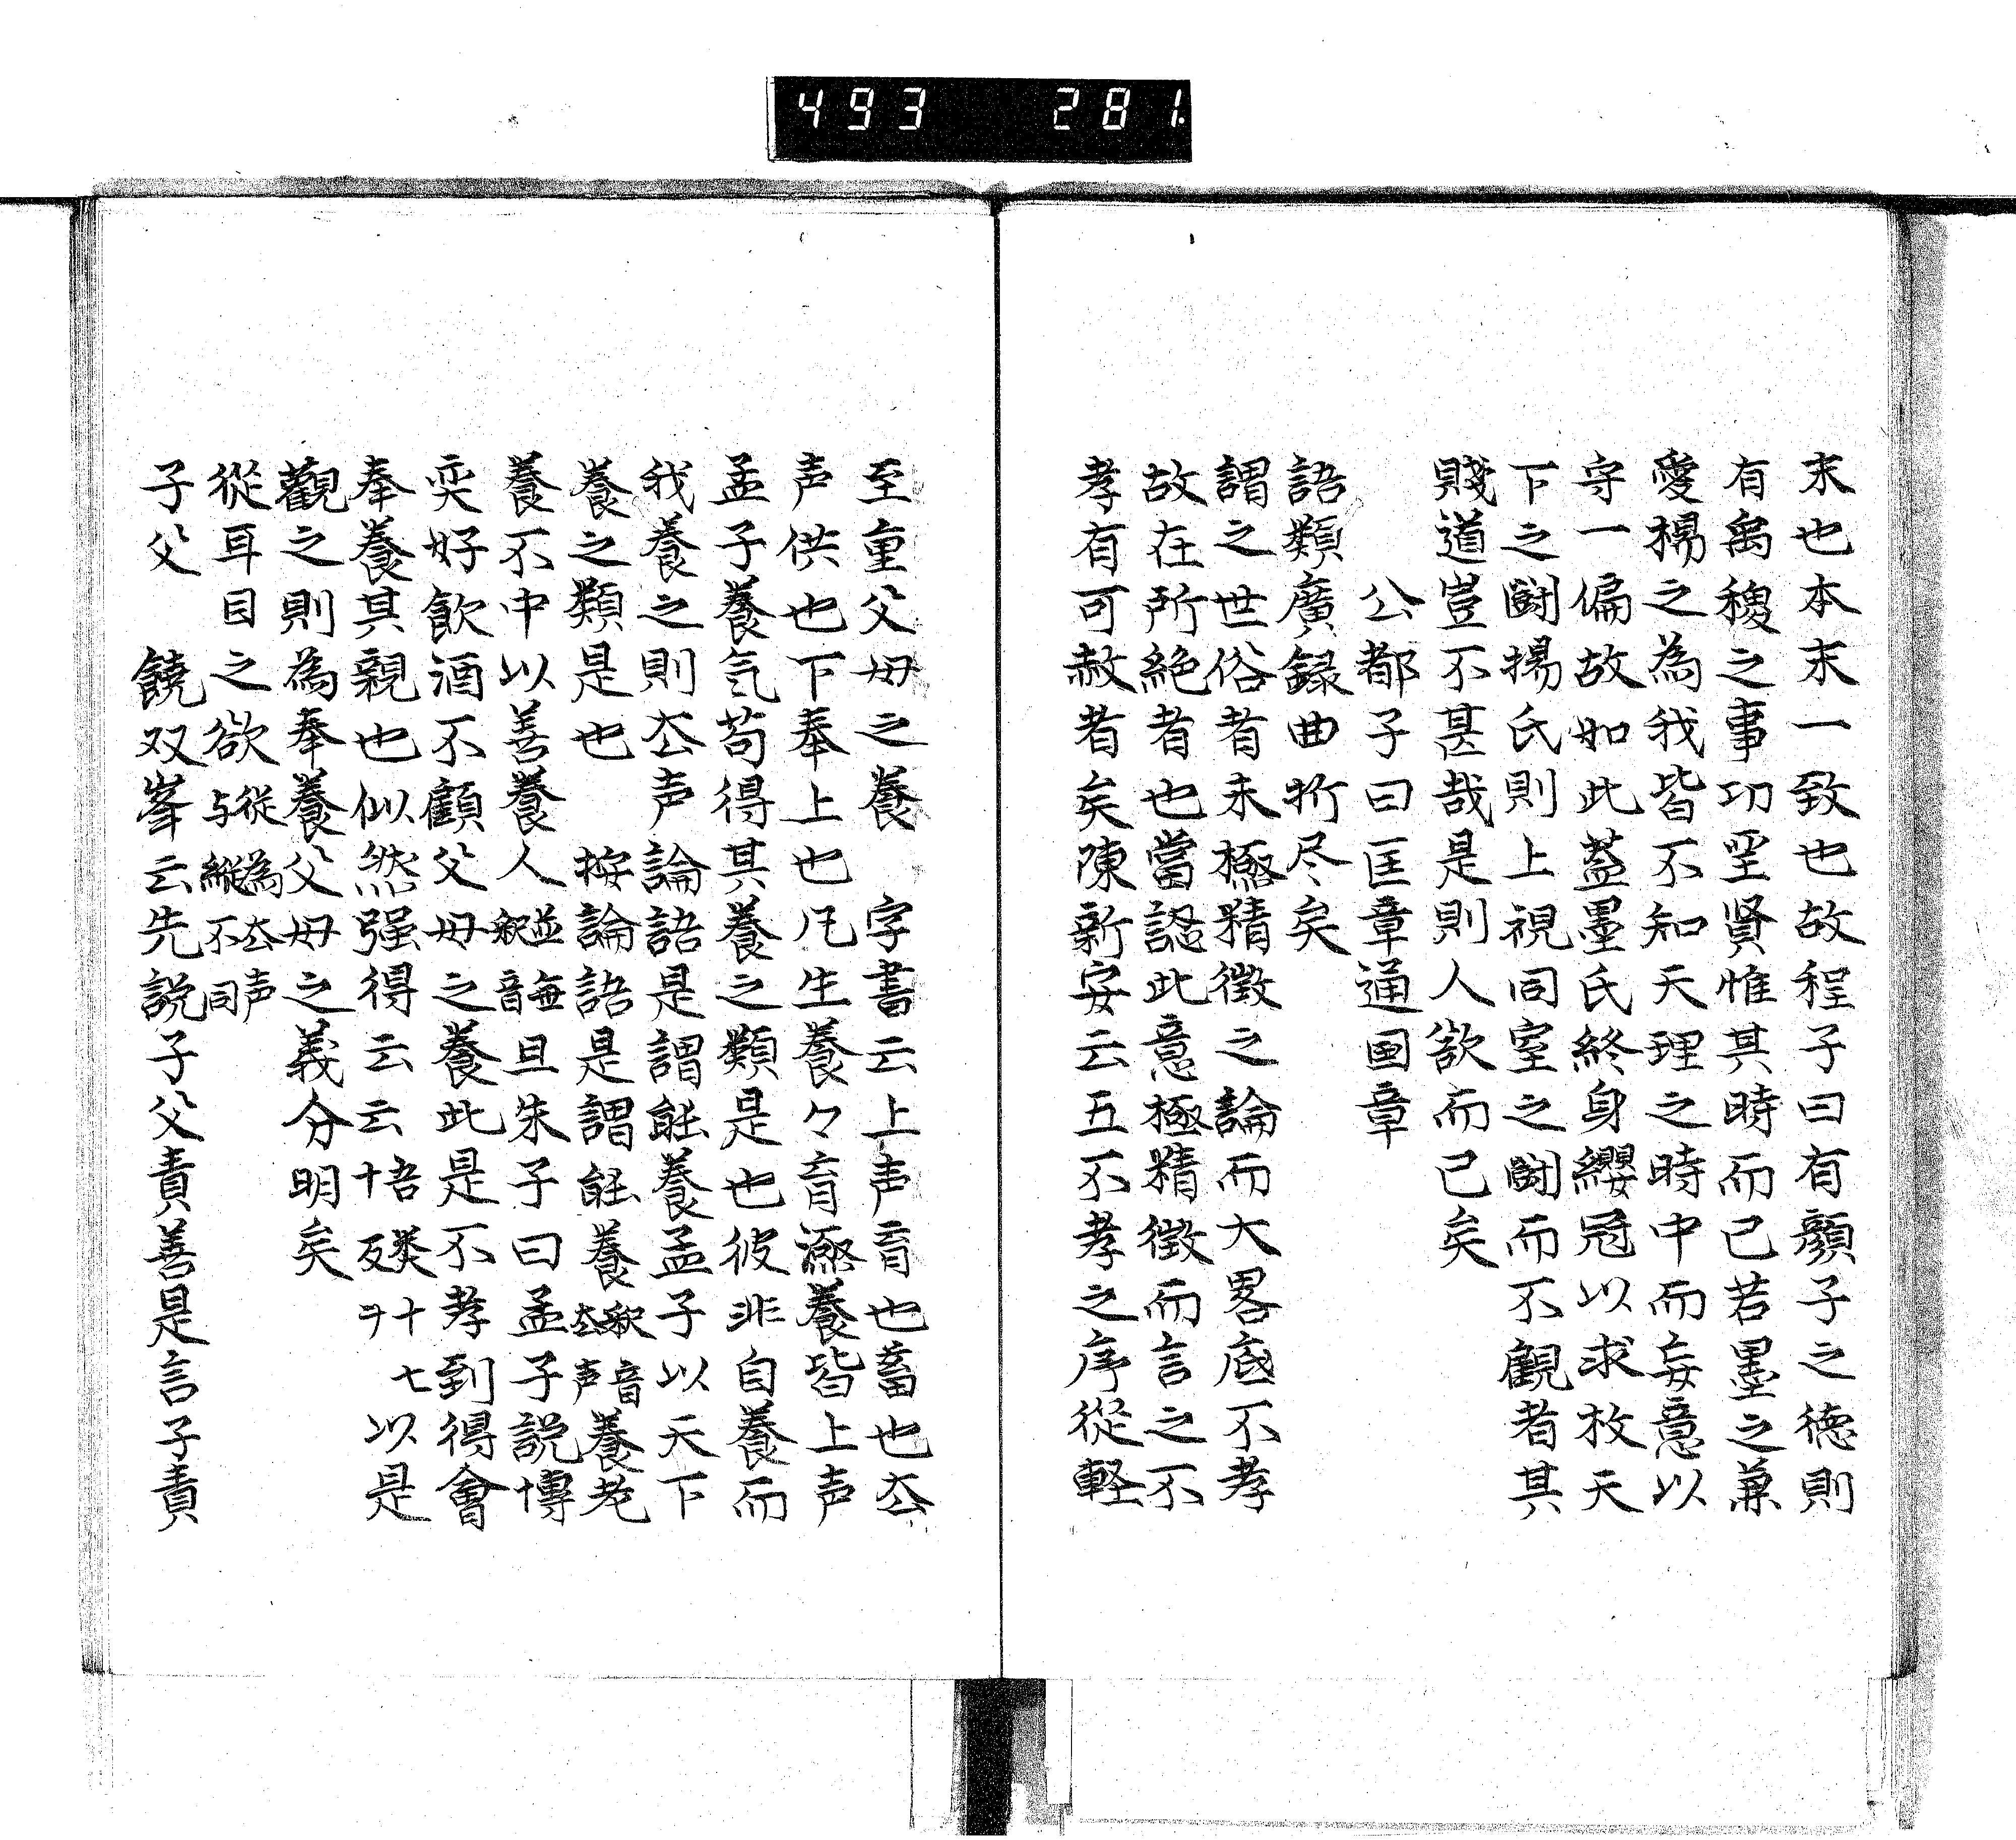 493 281
末也本末一致也故程子曰有顔子之徳則
有禹稷之事功聖賢惟其時而已若墨之兼
愛楊之為我皆不知天理之時中而妄意以
守一偏故如此蓋墨氏終身纓冠以求救天
下之鬪揚氏則上視同室之鬪而不觀者其
賤道豈不甚哉是則人欲而已矣
公都子曰匡章通国章
語類廣録曲折尽矣
謂之世俗者未極精徴之論而大畧底不孝
故在所絶者也當認此意極精徴而言之不
孝有可赦者矣陳新安云五不孝之序從軽
至重父母之養 字書云上声育也畜也去
声供也下奉上也凡生養々育滋養皆上声
孟子養気苟得其養之類是也彼非自養而
我養之則去声論語是謂能養孟子以天下
養之類是也 按論語是謂能養釈音去声養老
養不中以善養人並釈無音且朱子曰孟子説博
奕好飲酒不顧父母之養此是不孝到得會
奉養其親也似然强得云云語類五十七十ヲ以是
觀之則為奉養父母之義分明矣
從耳目之欲從為去声与縦不同
子父 饒双峯云先説子父責善是言子責